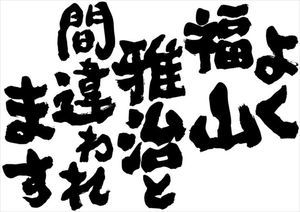 よく
福山
雅治と
間違われ
ます